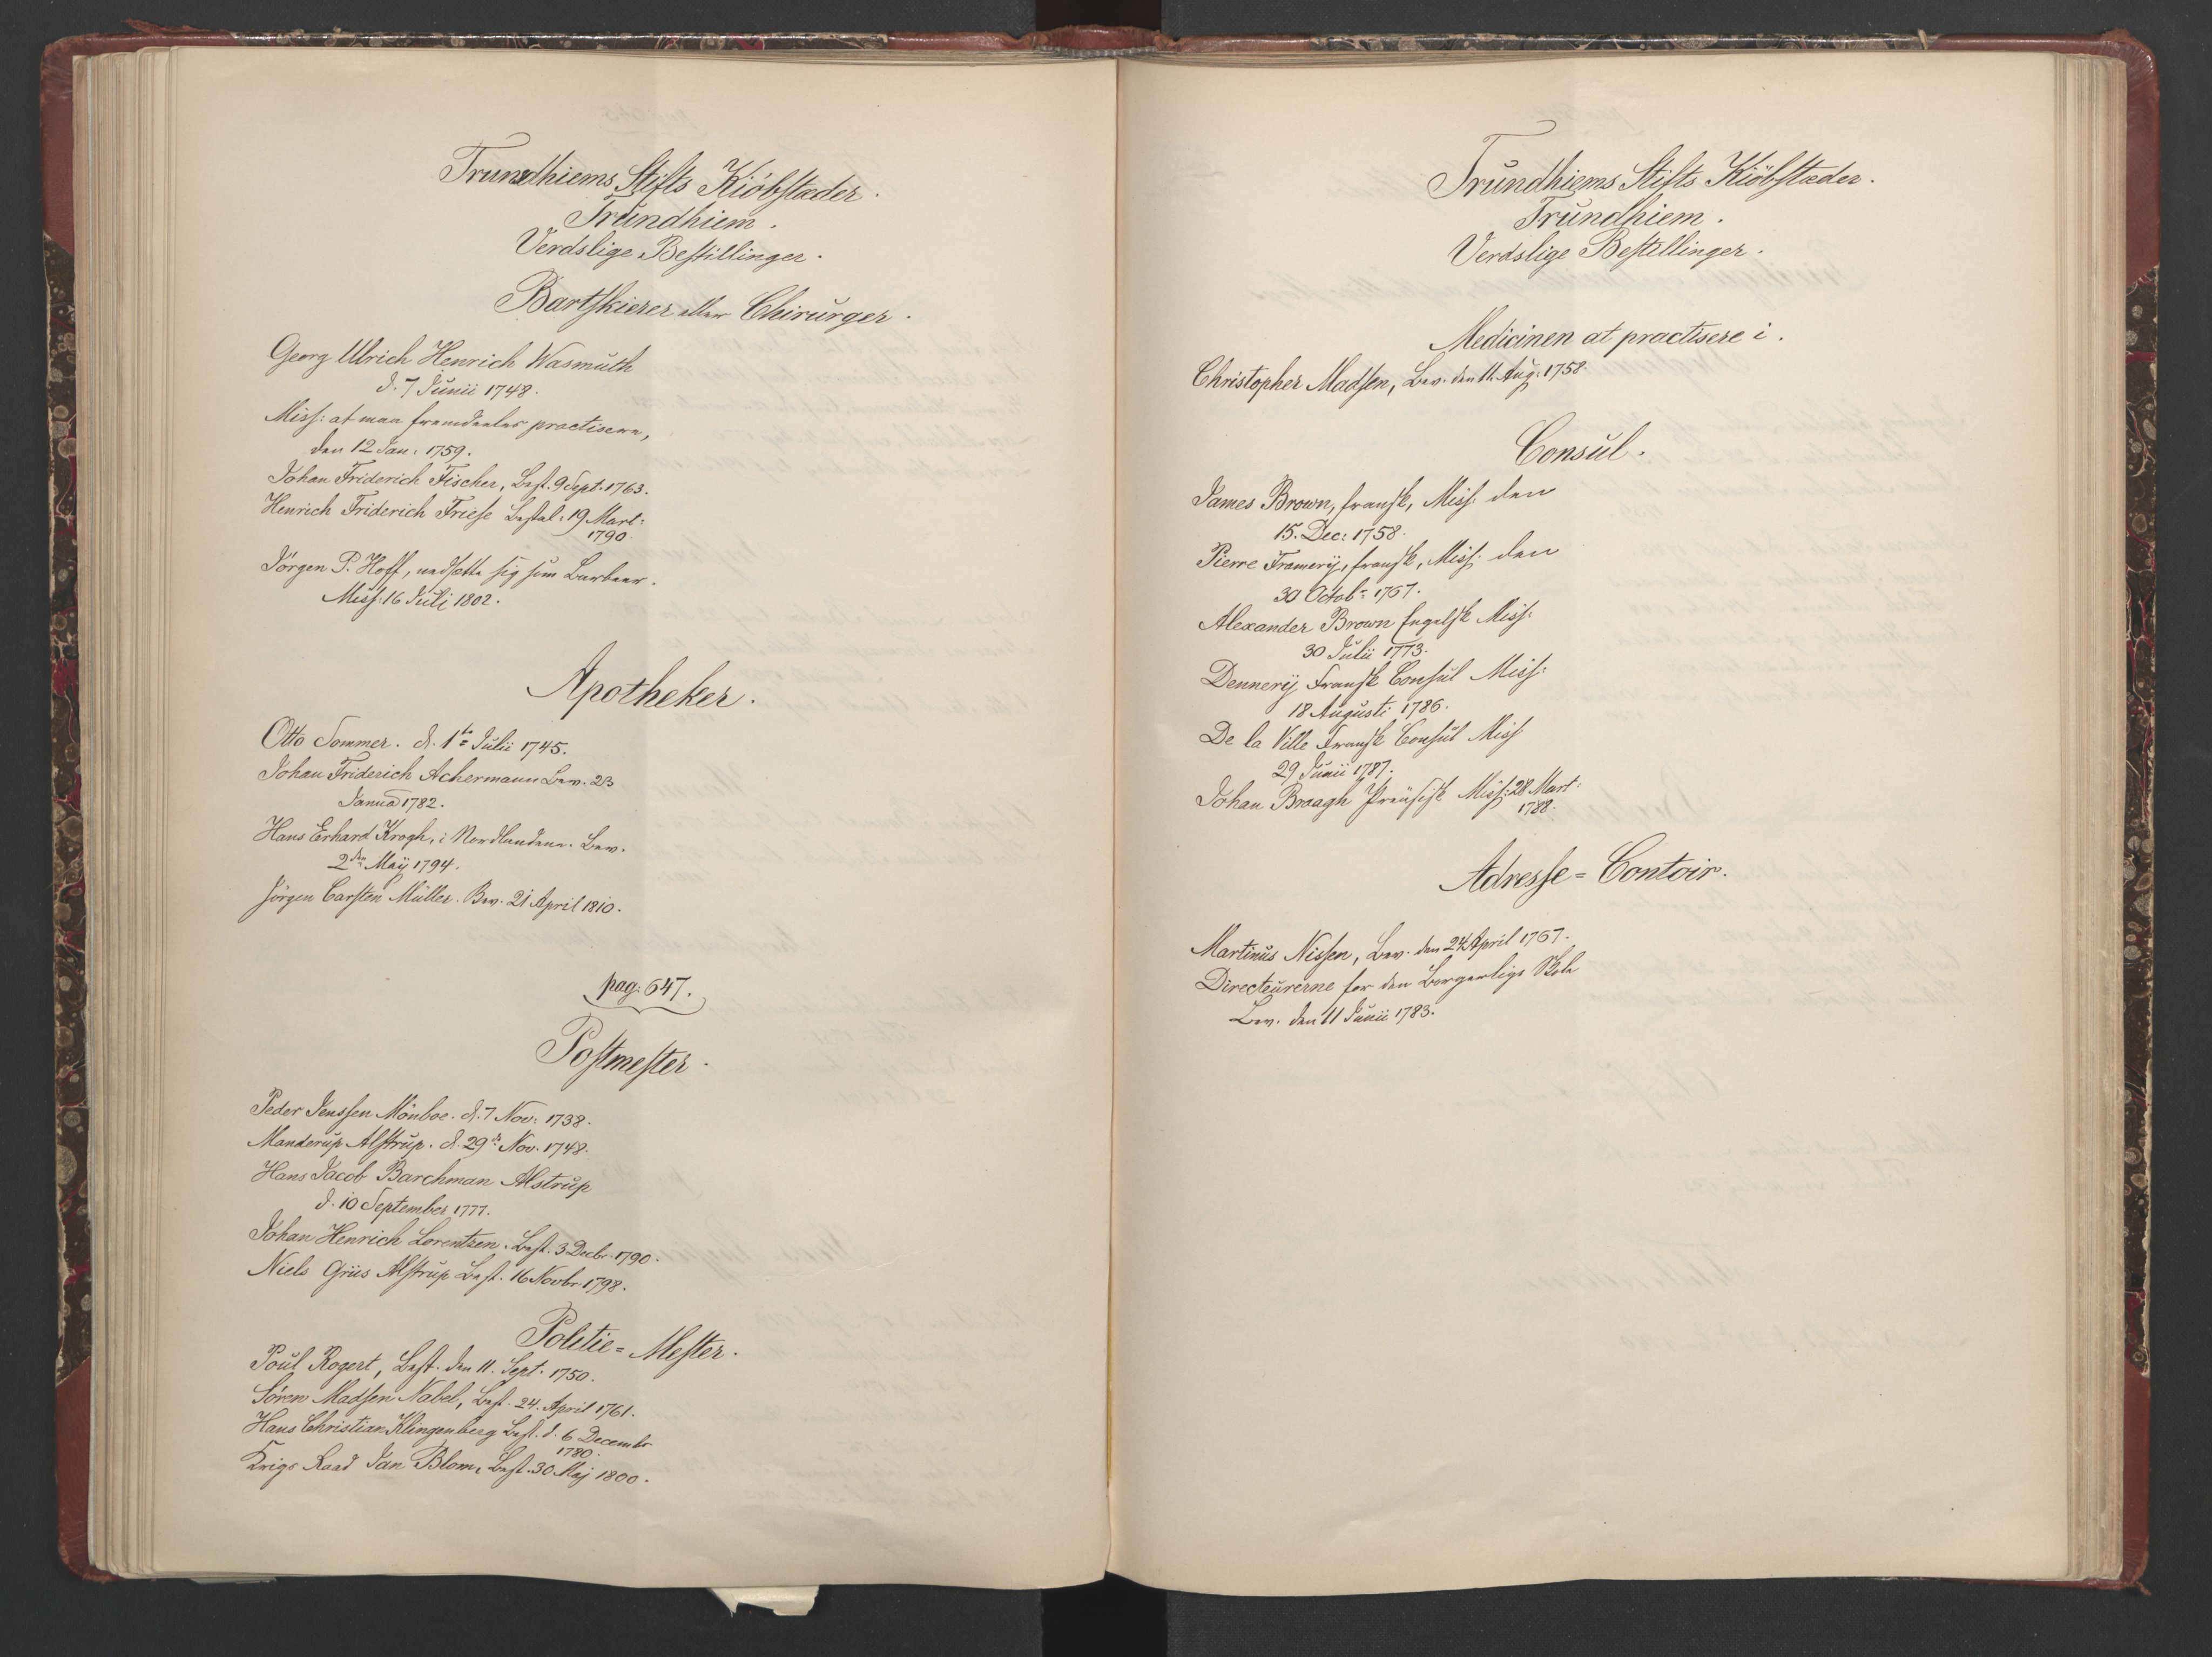 Trundhiems Stifts Kiöbstæder.
Trundhiem.
Verdslige Bestillinger.
Bartskierer eller Chirurger.
Georg Ulrich Henrich Wasmuth
d. 7 Junii 1748.
Miss: at maa fremdeeles practisere,
den 12 Jan: 1759.
Johan Friderich Fischer, Best. 9 Sept. 1763.
Henrich Friderich Friese Bestal: 19 Mart:
1790.
Jörgen P. Hoff, nedsætte sig som Barbeer.
Miss: 16 Juli 1802.
Apotheker.
Otto Sommer. d. 1te Julii 1745.
Johan Friderich Achermann Bev. 23
Janua 1782.
Hans Erhard Krogh, i Nordlandene. Bev.
2den Maÿ 1794.
Jörgen Carsten Müller. Bev. 21 April 1810.
pag: 647.
Postmester.
Peder Jenssen Mönboe. d. 7 Nov: 1738.
Manderup Alstrup. d. 29de Nov. 1748.
Hans Jacob Barchman Alstrup
d. 10 September 1777.
Johan Henrich Lorentzen. Best. 3 Decbr. 1790.
Niels Griis Alstrup Best. 16 Novbr. 1798.
Politie=Mester.
Poul Rogert, Best. den 11. Sept. 1750.
Sören Madsen Nabel, Best. 24. April 1761.
Hans Christian Klingenberg Best. d. 6 Decembr
1780.
Krigs Raad Jan Blom, Best. 30 Maj 1800.
Trundhiems Stifts Kiöbstæder.
Trundhiem.
Verdslige Bestillinger.
Medicinen at practisere i.
Christopher Madsen, Bev. den 11. Aug: 1758.
Consul.
James Brown, fransk, Miss. den
15. Dec: 1758.
Pierre Framerÿ, fransk, Miss: den
30 Octobr: 1767.
Alexander Brown Engelsk Miss:
30 Julii 1773.
Dennerÿ Fransk Consul Miss:
18 Augusti 1786.
De la Ville Fransk Consul Miss
29 Junii 1787.
Johan Broagh Preüsisk Miss: 28 Mart:
1788.
Adresse=Contoir.
Martinus Nissen, Bev. den 24 April 1767.
Directeurerne for den Borgerlige Skole
Bev. den 11 Junii 1783.